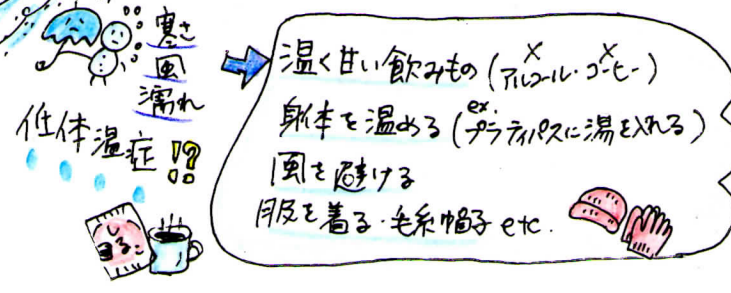 寒さ
風
濡れ
低体温症!?
温く甘い飲みもの(アルコール・コーヒー)
× ×
身体を温める(プラティパスに湯を入れる)
ex.
風を避ける
服を着る・毛糸帽子 etc.
しるこ